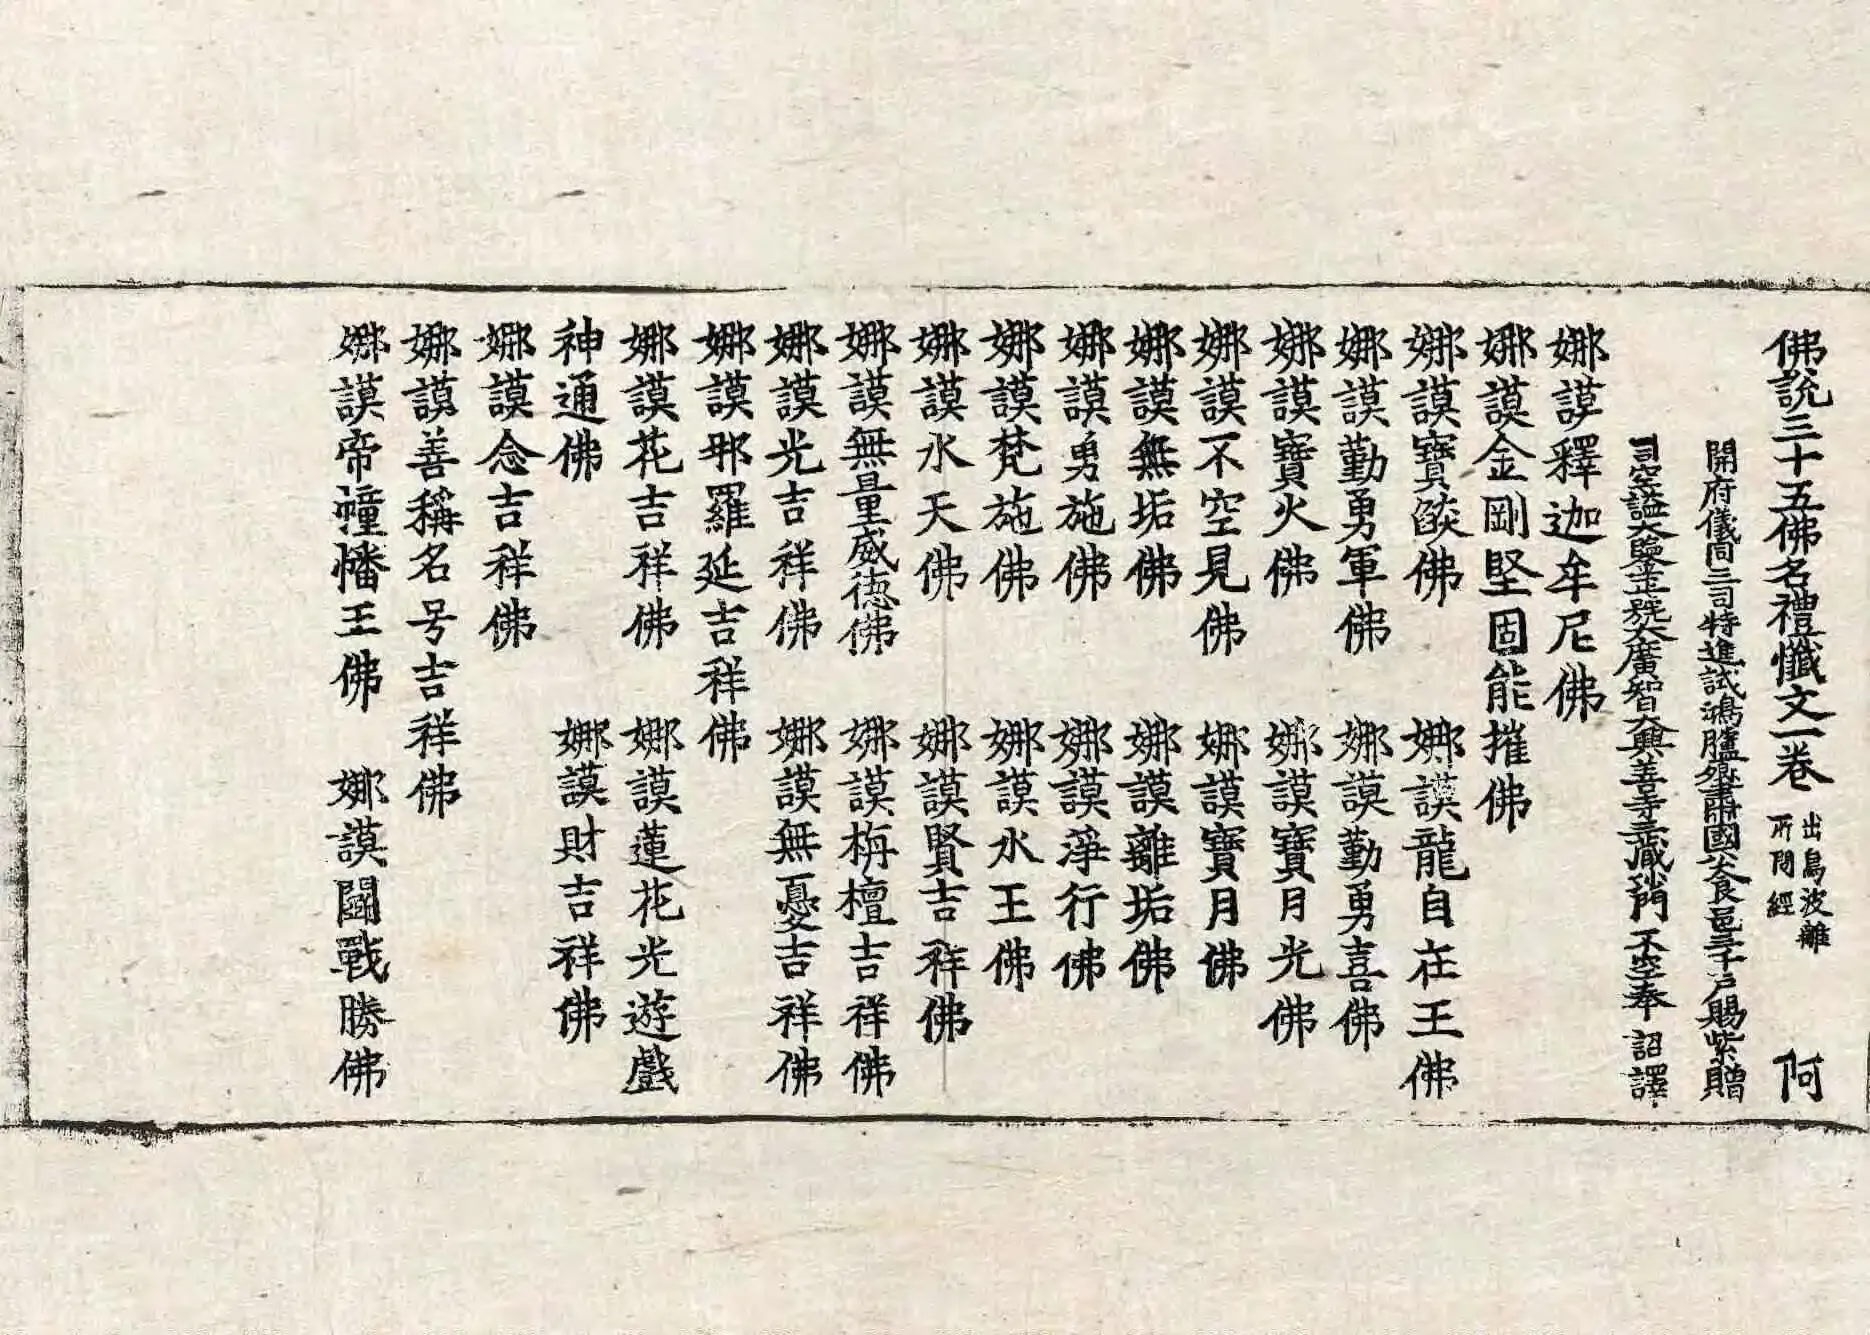 佛説三十五佛名禮懺文一卷 出烏波離所問經 阿
開府儀同三司特進試鴻臚卿肅國公食邑三千戸賜紫贈
司空謚大鑒正號大廣智大興善寺三藏沙門不空奉 詔譯
娜謨釋迦牟尼佛
娜謨金剛堅固能摧佛
娜謨寶焰佛 娜謨龍自在王佛
娜謨勤勇軍佛 娜謨勤勇喜佛
娜謨寶火佛 娜謨寶月光佛
娜謨不空見佛 娜謨寶月佛
娜謨無垢佛 娜謨離垢佛
娜謨勇施佛 娜謨淨行佛
娜謨梵施佛 娜謨水王佛
娜謨水天佛 娜謨賢吉祥佛
娜謨無量威德佛 娜謨栴檀吉祥佛
娜謨光吉祥佛 娜謨無憂吉祥佛
娜謨那羅延吉祥佛
娜謨花吉祥佛 娜謨蓮花光遊戲
神通佛 娜謨財吉祥佛
娜謨念吉祥佛
娜謨善稱名号吉祥佛
娜謨帝幢幡王佛 娜謨鬪戰勝佛